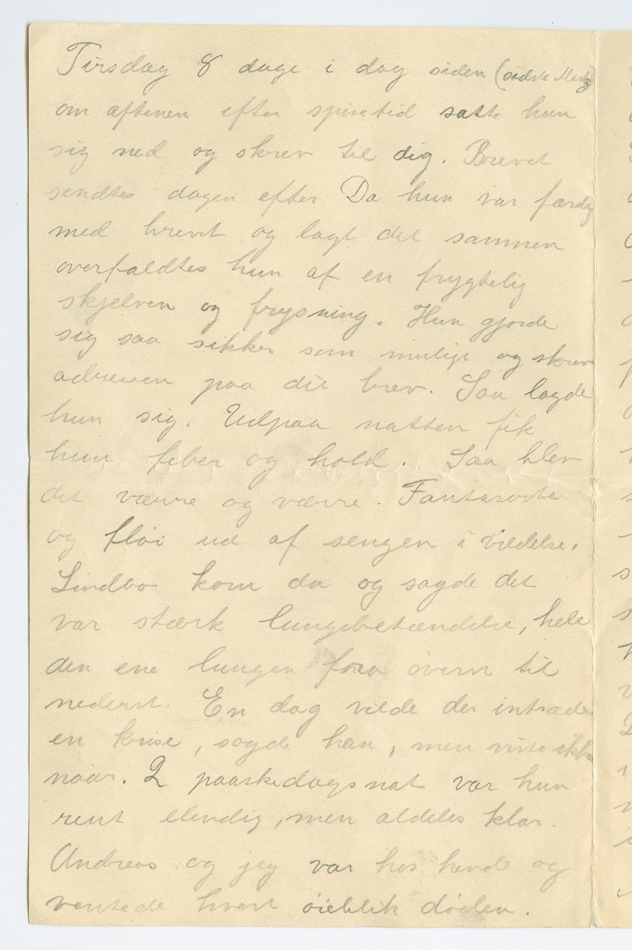 Tirsdag 8 dage i dag siden (sidste Marts)
om aftenen efter spisetid satte hun
sig ned og skrev til dig. Brevet
sendtes dagen efter. Da hun var færdig
med brevet og lagt det sammen
overfaldtes hun af en frygtelig
skjelven og frysning. Hun gjorde
sig saa sikker som mulige og skrev
adressen paa dit brev. Saa lagde
hun sig. Udpaa natten fik
hun feber og hold. Saa blev
det værre og værre. Fantaserte
og fløi ud af sengen i vildelse.
Lindboe kom da og sagde det
var stærk lungebetændelse, hele
den ene lungen fra øverst til
nederst. En dag vilde der intræde
en krise, sagde han, men viste ikke
naar. 2 paaskedagsnat var hun
rent elendig, men aldeles klar.
Andreas og jeg var hos hende og
ventede hvert øieblik døden.